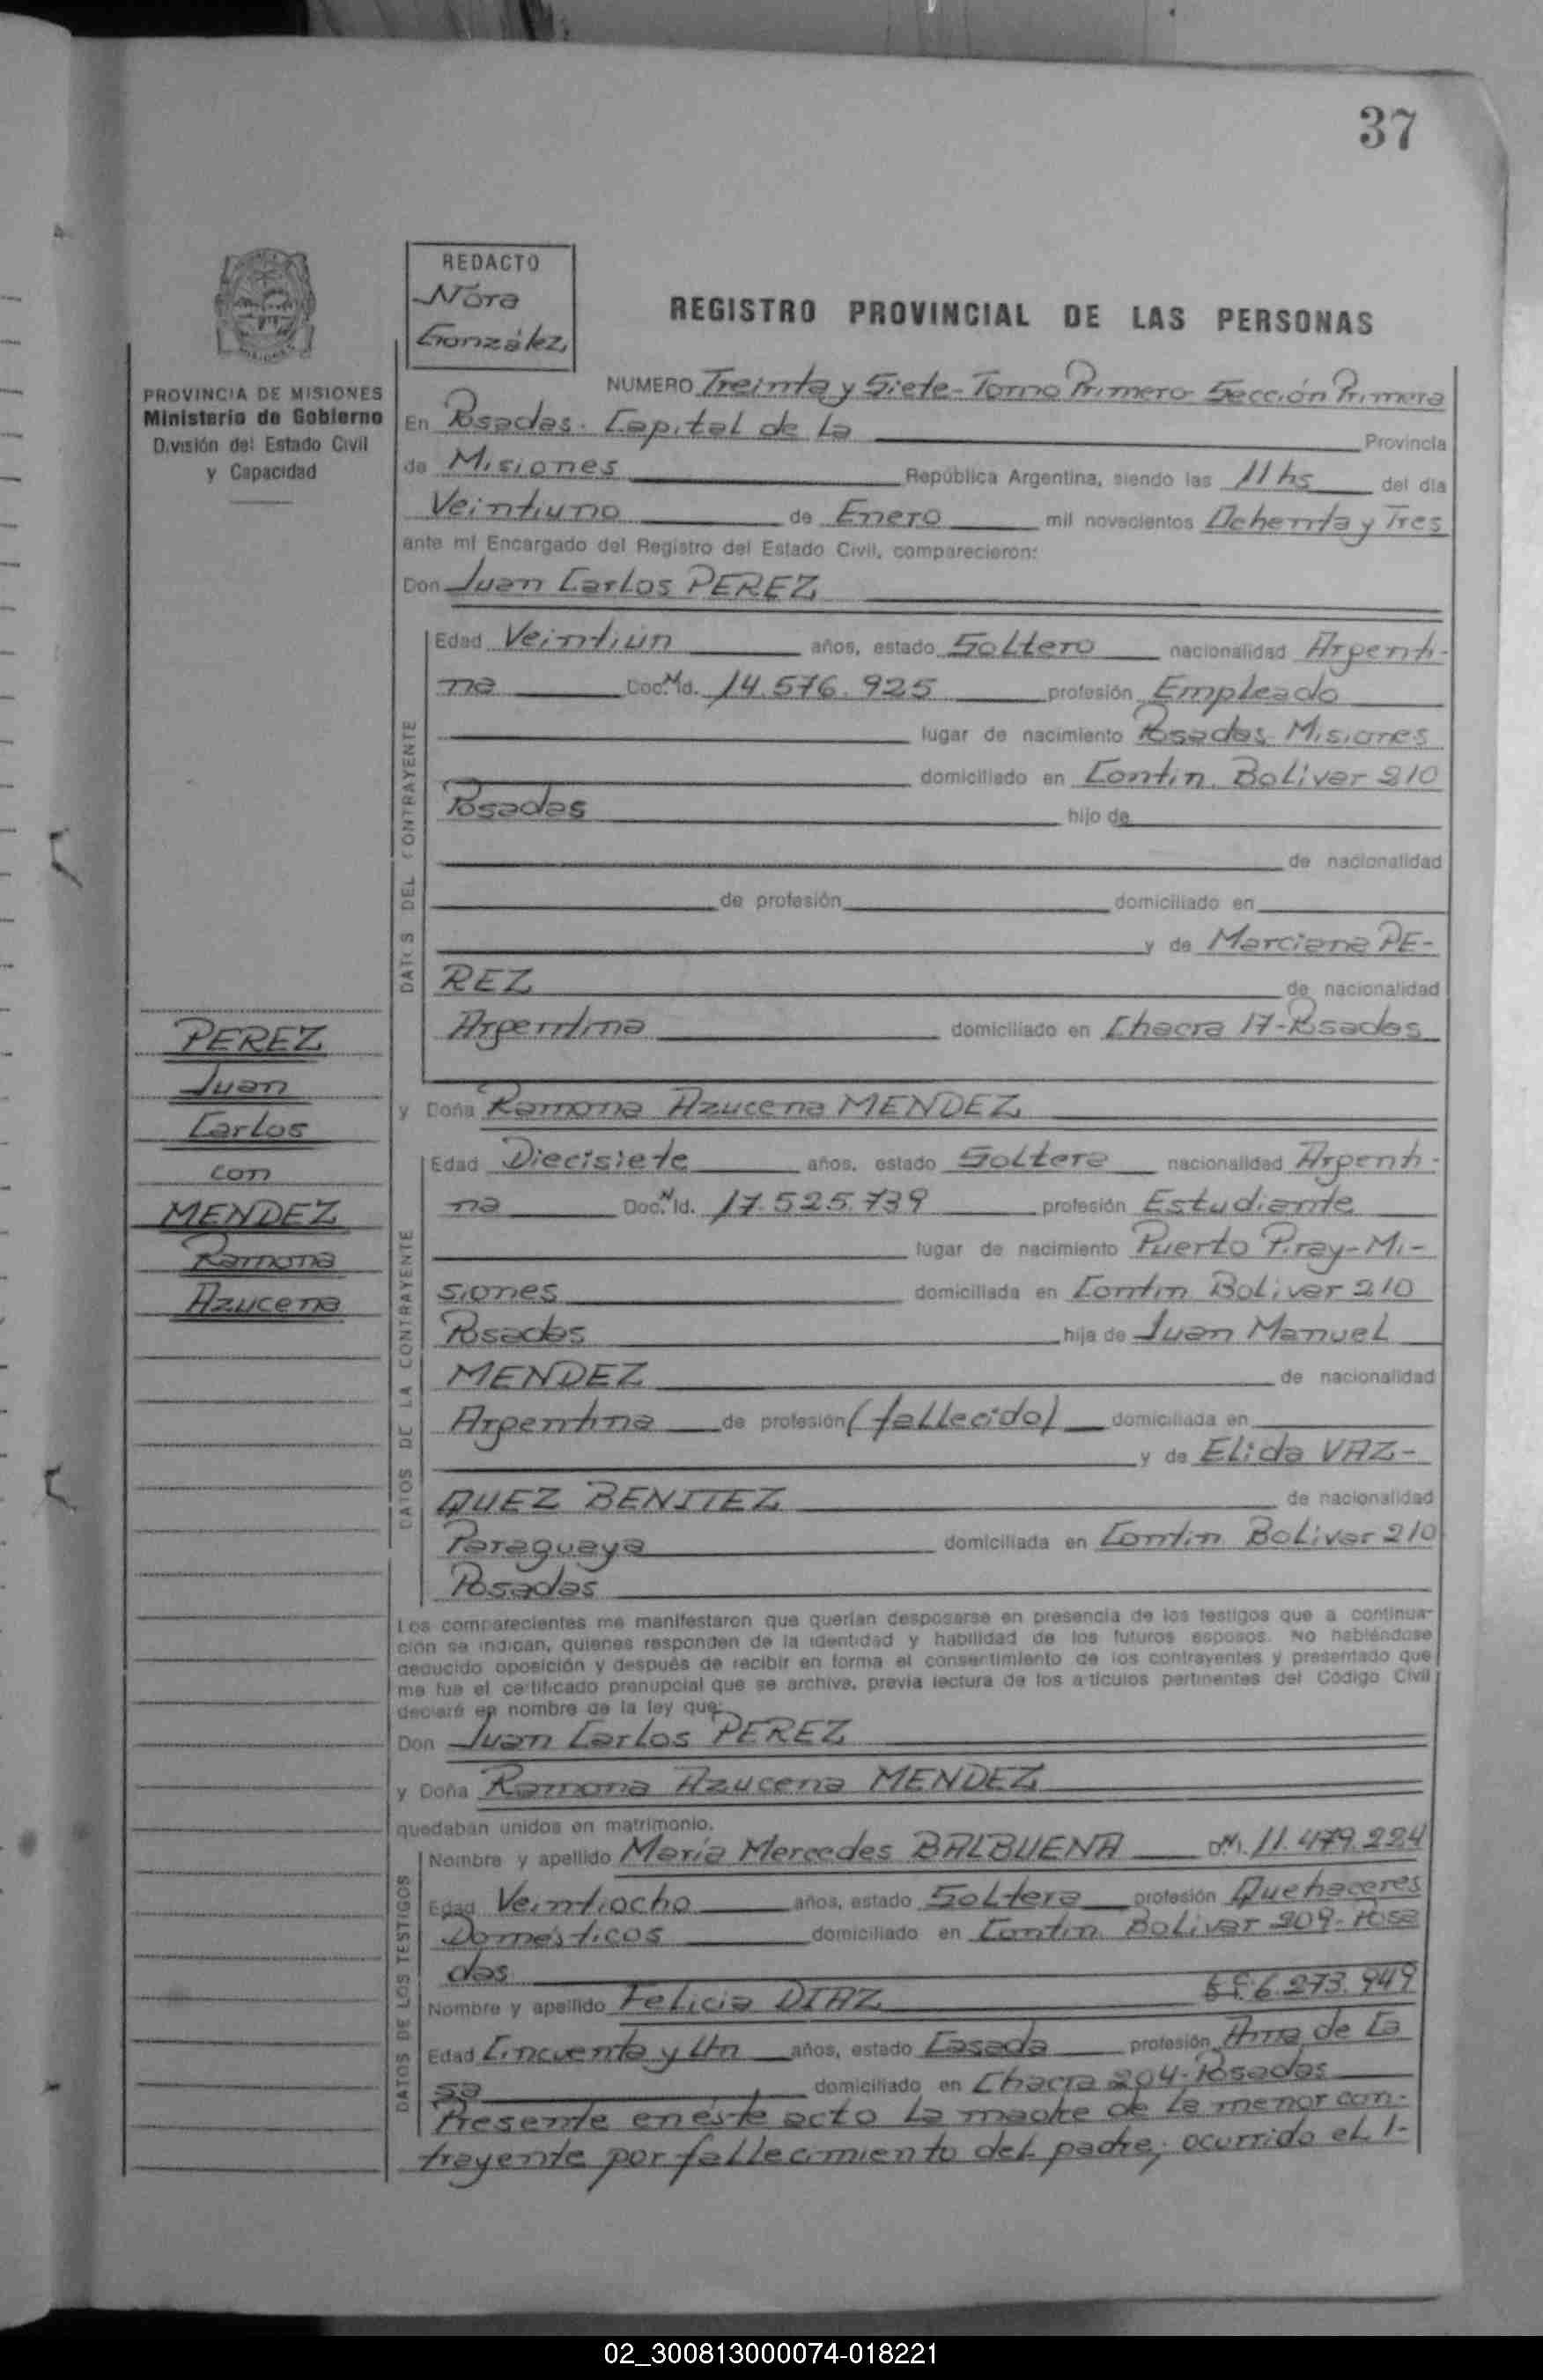 37
REDACTO
Nora
González
REGISTRO PROVINCIAL DE LAS PERSONAS
PROVINCIA DE MISIONES
Ministerio de Gobierno
División del Estado Civil
y Capacidad
NUMERO Treinta y Siete - Tomo Primero - Sección Primera
En Posadas. Capital de La Provincia
de Misiones República Argentina, siendo las 11 hs del día
Veintiuno de Enero mil novecientos Ochenta y Tres
ante mí Encargado del Registro del Estado Civil, comparecieron:
Don Juan Carlos PEREZ
DATOS DEL CONTRAYENTE
Edad Veintiún años, estado Soltero nacionalidad Argenti-
na Doc. Id. 14.576.925 profesión Empleado
lugar de nacimiento Posadas-Misiones
domiciliado en Contin. Bolivar 210
Posadas hijo de
de nacionalidad
de profesión domiciliado en
y de Marciana PE-
REZ de nacionalidad
Argentina domiciliado en Chacra 17-Posadas
PEREZ
Juan
Carlos
con
MENDEZ
Ramona
Azucena
y Doña Ramona Azucena MENDEZ
DATOS DE LA CONTRAYENTE
Edad Diecisiete años, estado Soltera nacionalidad Argenti-
na Doc. Id. 17.525.739 profesión Estudiante
lugar de nacimiento Puerto Piray-Mi-
siones domiciliada en Contin Bolivar 210
Posadas hija de Juan Manuel
MENDEZ de nacionalidad
Argentina de profesión (fallecido) domiciliada en
y de Elida VAZ-
QUEZ BENITEZ de nacionalidad
Paraguaya domiciliada en Contin. Bolivar 210
Posadas
Los comparecientes me manifestaron que querían desposarse en presencia de los testigos que a continua-
ción se indican, quienes responden de la identidad y habilidad de los futuros esposos. No habiéndose
deducido oposición y después de recibir en forma el consentimiento de los contrayentes y presentado que
me fue el certificado prenupcial que se archiva, previa lectura de los artículos pertinentes del Código Civil
declaré en nombre de la ley que:
Don Juan Carlos PEREZ
y Doña Ramona Azucena MENDEZ
quedaban unidos en matrimonio.
DATOS DE LOS TESTIGOS
Nombre y apellido María Mercedes BALBUENA 11.479.224
Edad Veintiocho años, estado Soltera profesión Quehaceres
Domésticos domiciliado en Contin. Bolivar 209-Posa
das
Nombre y apellido Felicia DIAZ 6.273.949
Edad Cincuenta y Un años, estado Casada profesión Ama de Ca
sa domiciliado en Chacra 204-Posadas
Presente en éste acto la madre de la menor con-
trayente por fallecimiento del padre, ocurrido el 1-
02_300813000074-018221